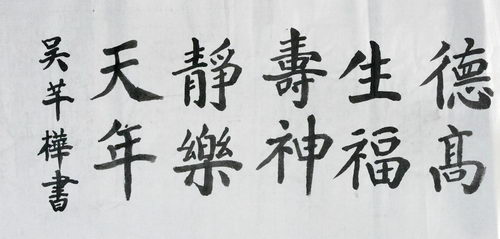 德高
生福
壽神
靜樂
天年
吴芊樺書